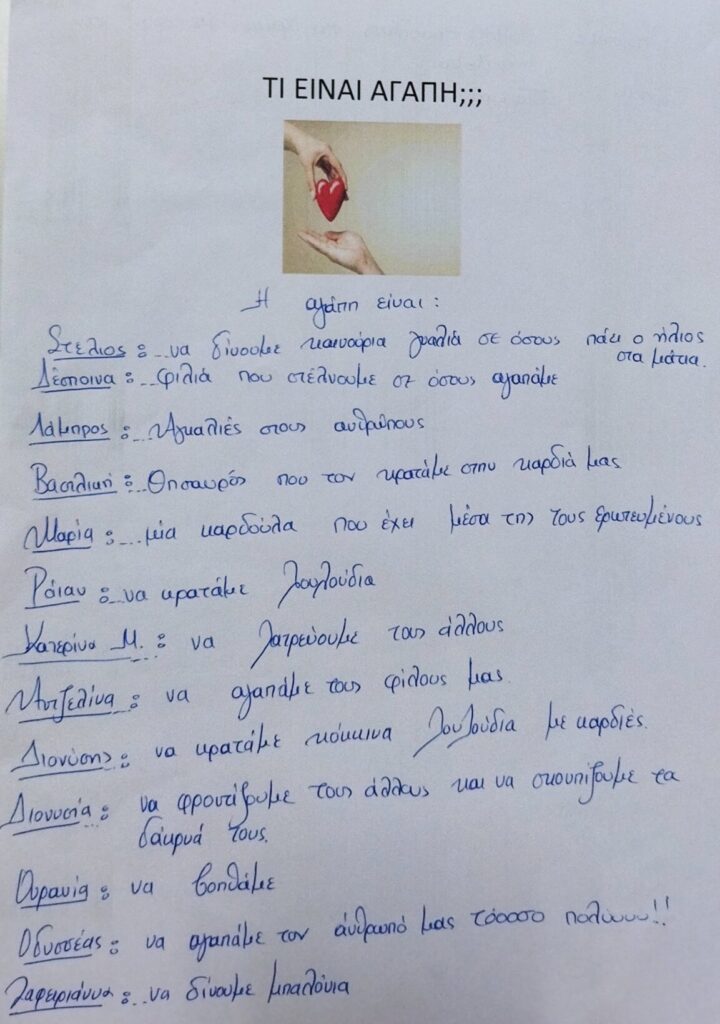 ΤΙ ΕΙΝΑΙ ΑΓΑΠΗ;;;
Η αγάπη είναι:
Στέλιος: ...να δίνουμε καινούρια γυαλιά σε όσους πάει ο ήλιος
στα μάτια.
Δέσποινα: ...φιλιά που στέλνουμε σ' όσους αγαπάμε
Λάμπρος: ...Αγκαλιές στους ανθρώπους
Βασιλική: ...Θησαυρός που τον κρατάμε στην καρδιά μας
Μαρία: ...μία καρδούλα που έχει μέσα της τους ερωτευμένους
Ράιαν: ...να κρατάμε λουλούδια
Κατερίνα Μ.: να λατρεύουμε τους άλλους
Αντζελίνα: να αγαπάμε τους φίλους μας
Διονύσης: να κρατάμε κόκκινα λουλούδια με καρδιές.
Διονυσία: να φροντίζουμε τους άλλους και να σκουπίζουμε τα
δάκρυά τους.
Ουρανία: να βοηθάμε
Οδυσσέας: να αγαπάμε τον άνθρωπό μας τόοοσο πολύυυυ!!
Ζαφειριάννα: ...να δίνουμε μπαλόνια